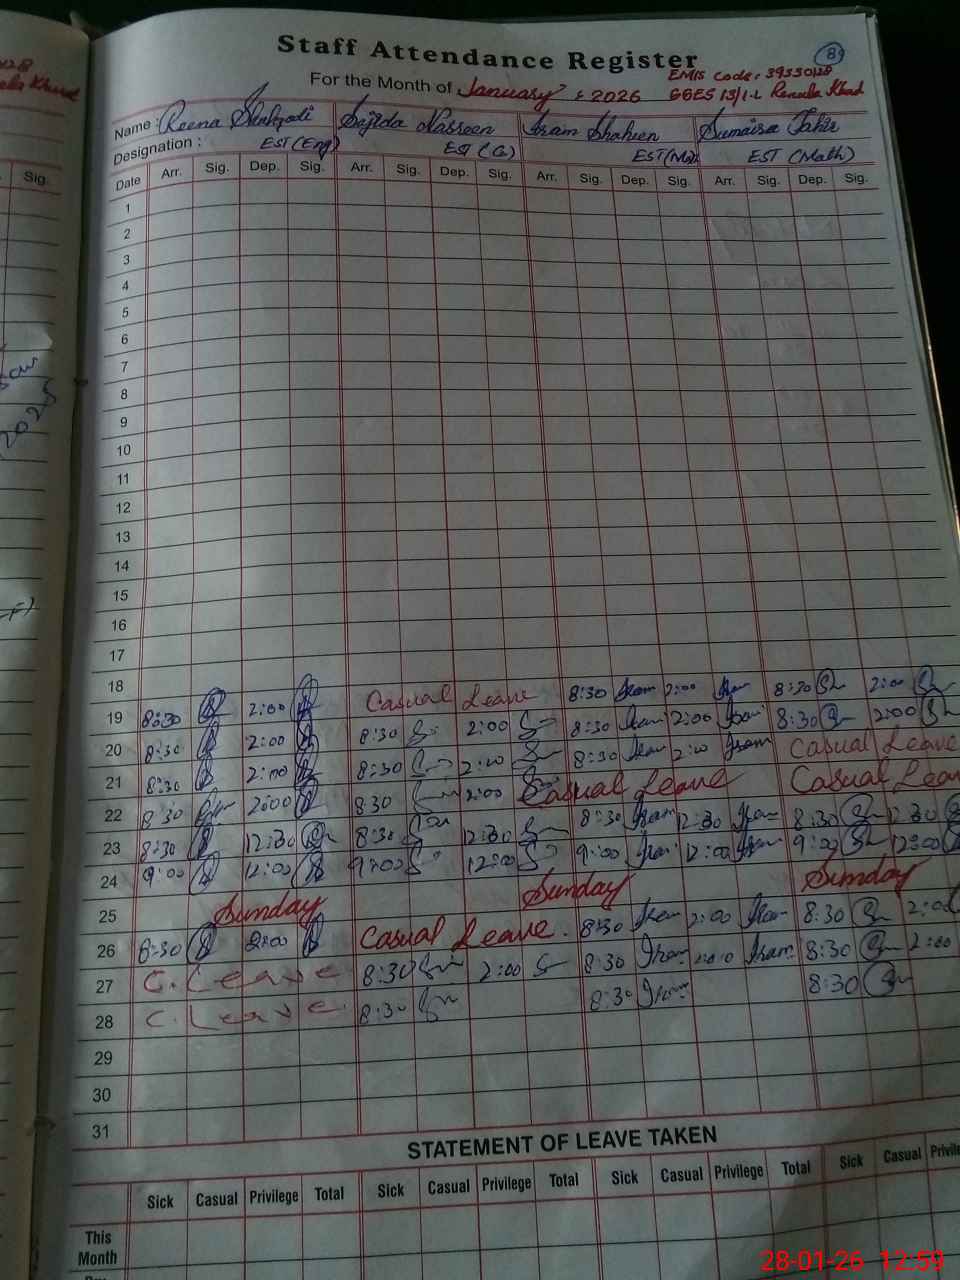 Staff Attendance Register
89
For the Month of January, 2026
EMIS Code: 39330128
GGES 13/1-L Renala Khurd
Name : Reena Shahzadi Sajida Nasreen Iram Shaheen Sumaira Tahir
Designation : EST (Eng) EST (G) EST (Math)
Date Arr. Sig. Dep. Sig. Arr. Sig. Dep. Sig. Arr. Sig. Dep. Sig. Arr. Sig. Dep. Sig.
1
2
3
4
5
6
7
8
9
10
11
12
13
14
15
16
17
18
19 8:30 2:00 Casual Leave 8:30 Iram 2:00 Iram 8:30 2:00
20 8:30 2:00 8:30 2:00 8:30 Iram 2:00 Iram 8:30 2:00
21 8:30 2:00 8:30 2:00 8:30 Iram 2:00 Iram Casual Leave
22 8:30 2:00 8:30 2:00 Casual Leave Casual Leave
23 8:30 12:30 8:30 12:30 8:30 Iram 12:30 Iram 8:30 12:30
24 9:00 12:00 9:00 12:00 9:00 Iram 12:00 Iram 9:00 12:00
25 Sunday Sunday Sunday
26 8:30 2:00 Casual Leave. 8:30 Iram 2:00 Iram 8:30 2:00
27 C. Leave 8:30 2:00 8:30 Iram Iram 8:30 2:00
28 C. Leave 8:30 8:30 Iram 8:30
29
30
31
STATEMENT OF LEAVE TAKEN
Sick Casual Privilege Total Sick Casual Privilege Total Sick Casual Privilege Total Sick Casual
This
Month
28-01-26 12:59